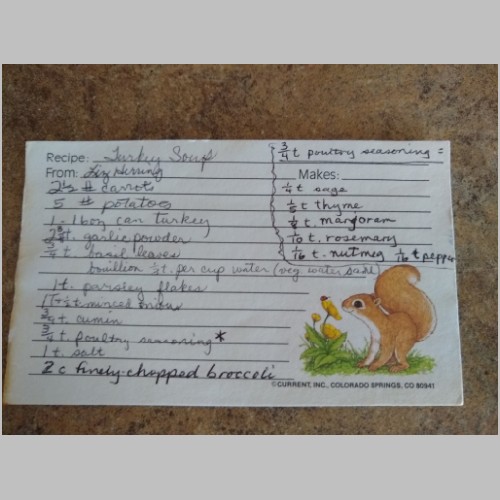 Recipe: Turkey Soup
From: Liz Herring
2 1/2 # carrots
5 # potatoes
1 - 16 oz can turkey
t. garlic powder
3/4 t. basil leaves
bouillon 1/2 t. per cup water (veg. water
1 t. parsley flakes
minced onion
3/4 t. cumin
3/4 t. poultry seasoning *
1 t. salt
2 c finely chopped broccoli
3/4 t poultry seasoning =
Makes:
1/4 t sage
1/8 t thyme
1/8 t. marjoram
1/10 t. rosemary
1/16 t. nutmeg 1/16 t pepper
©CURRENT, INC., COLORADO SPRINGS, CO 80941